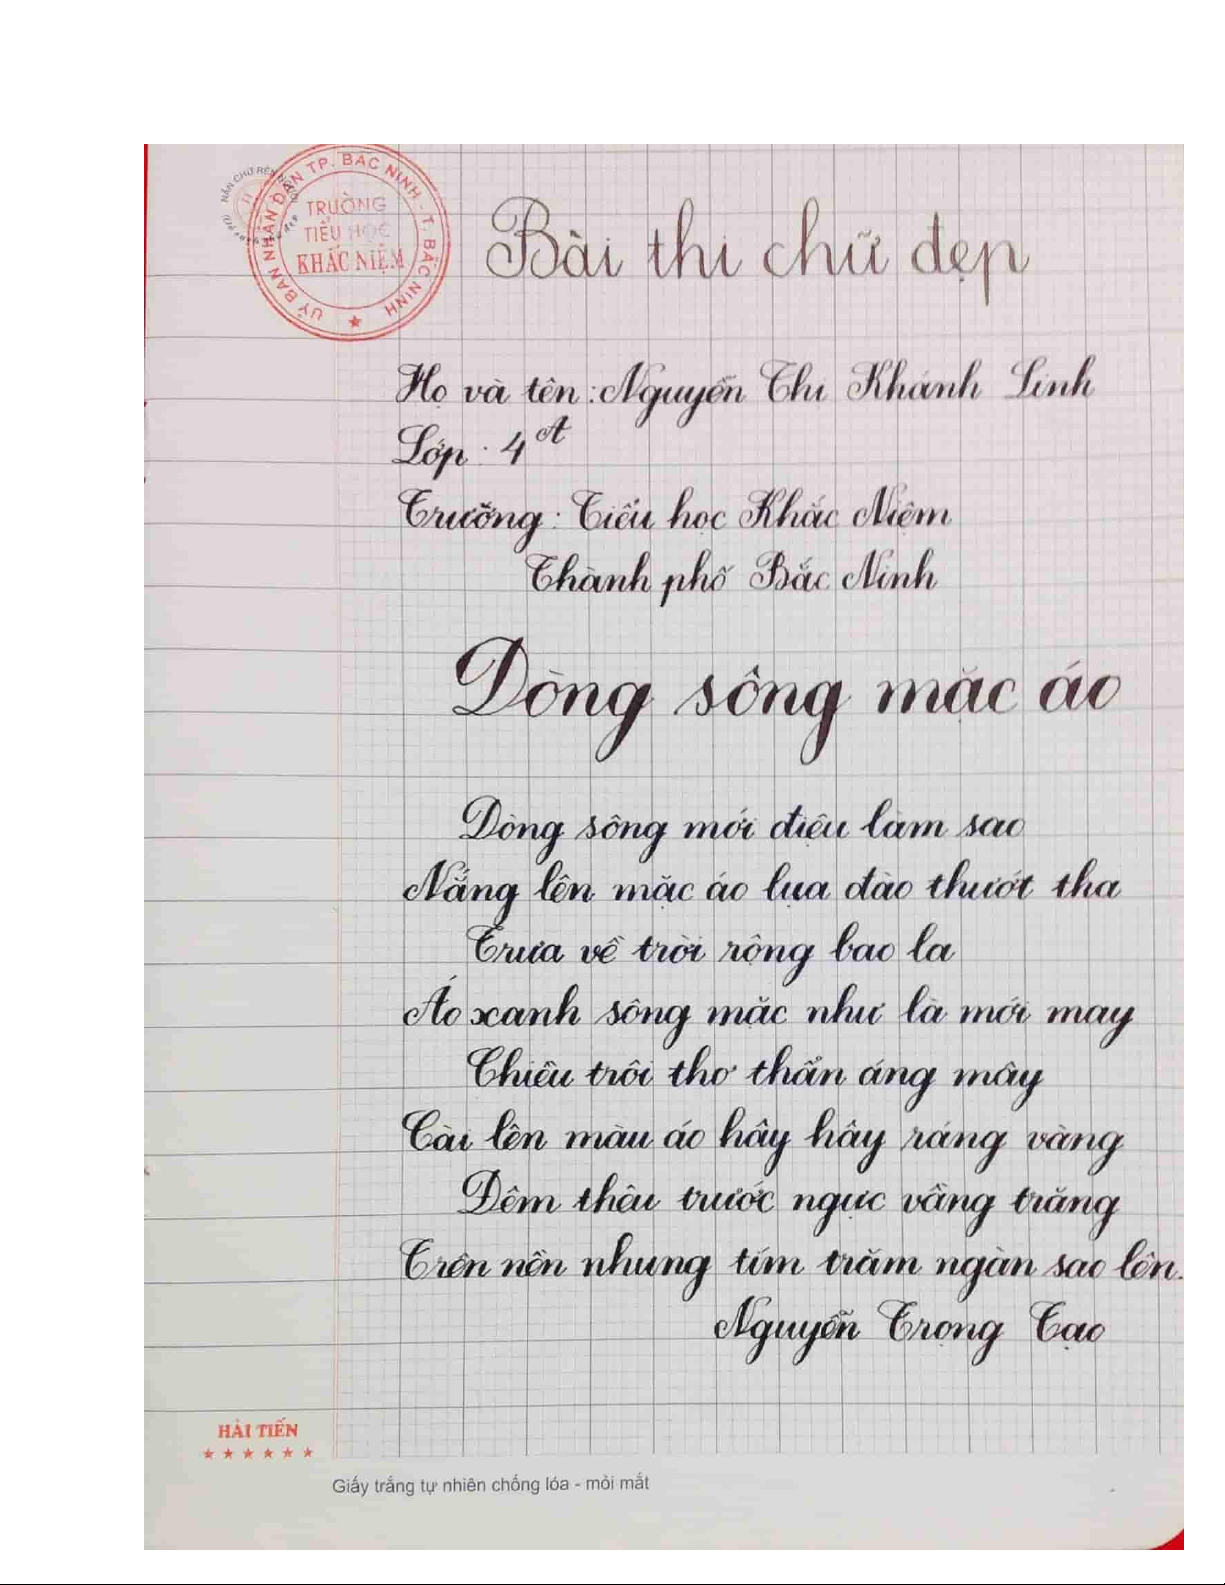 UỶ BAN NHÂN DÂN TP. BẮC NINH - T. BẮC NINH
TRƯỜNG
TIỂU HỌC
KHẮC NIỆM
Bài thi chữ đẹp
Họ và tên: Nguyễn Thị Khánh Linh
Lớp: 4A
Trường: Tiểu học Khắc Niệm
Thành phố Bắc Ninh
Dòng sông mặc áo
Dòng sông mới điệu làm sao
Nắng lên mặc áo lụa đào thướt tha
Trưa về trời rộng bao la
Áo xanh sông mặc như là mới may
Chiều trôi thơ thẩn áng mây
Cài lên màu áo hây hây ráng vàng
Đêm thêu trước ngực vầng trăng
Trên nền nhung tím trăm ngàn sao lên.
Nguyễn Trọng Tạo
HẢI TIẾN
Giấy trắng tự nhiên chống lóa - mỏi mắt